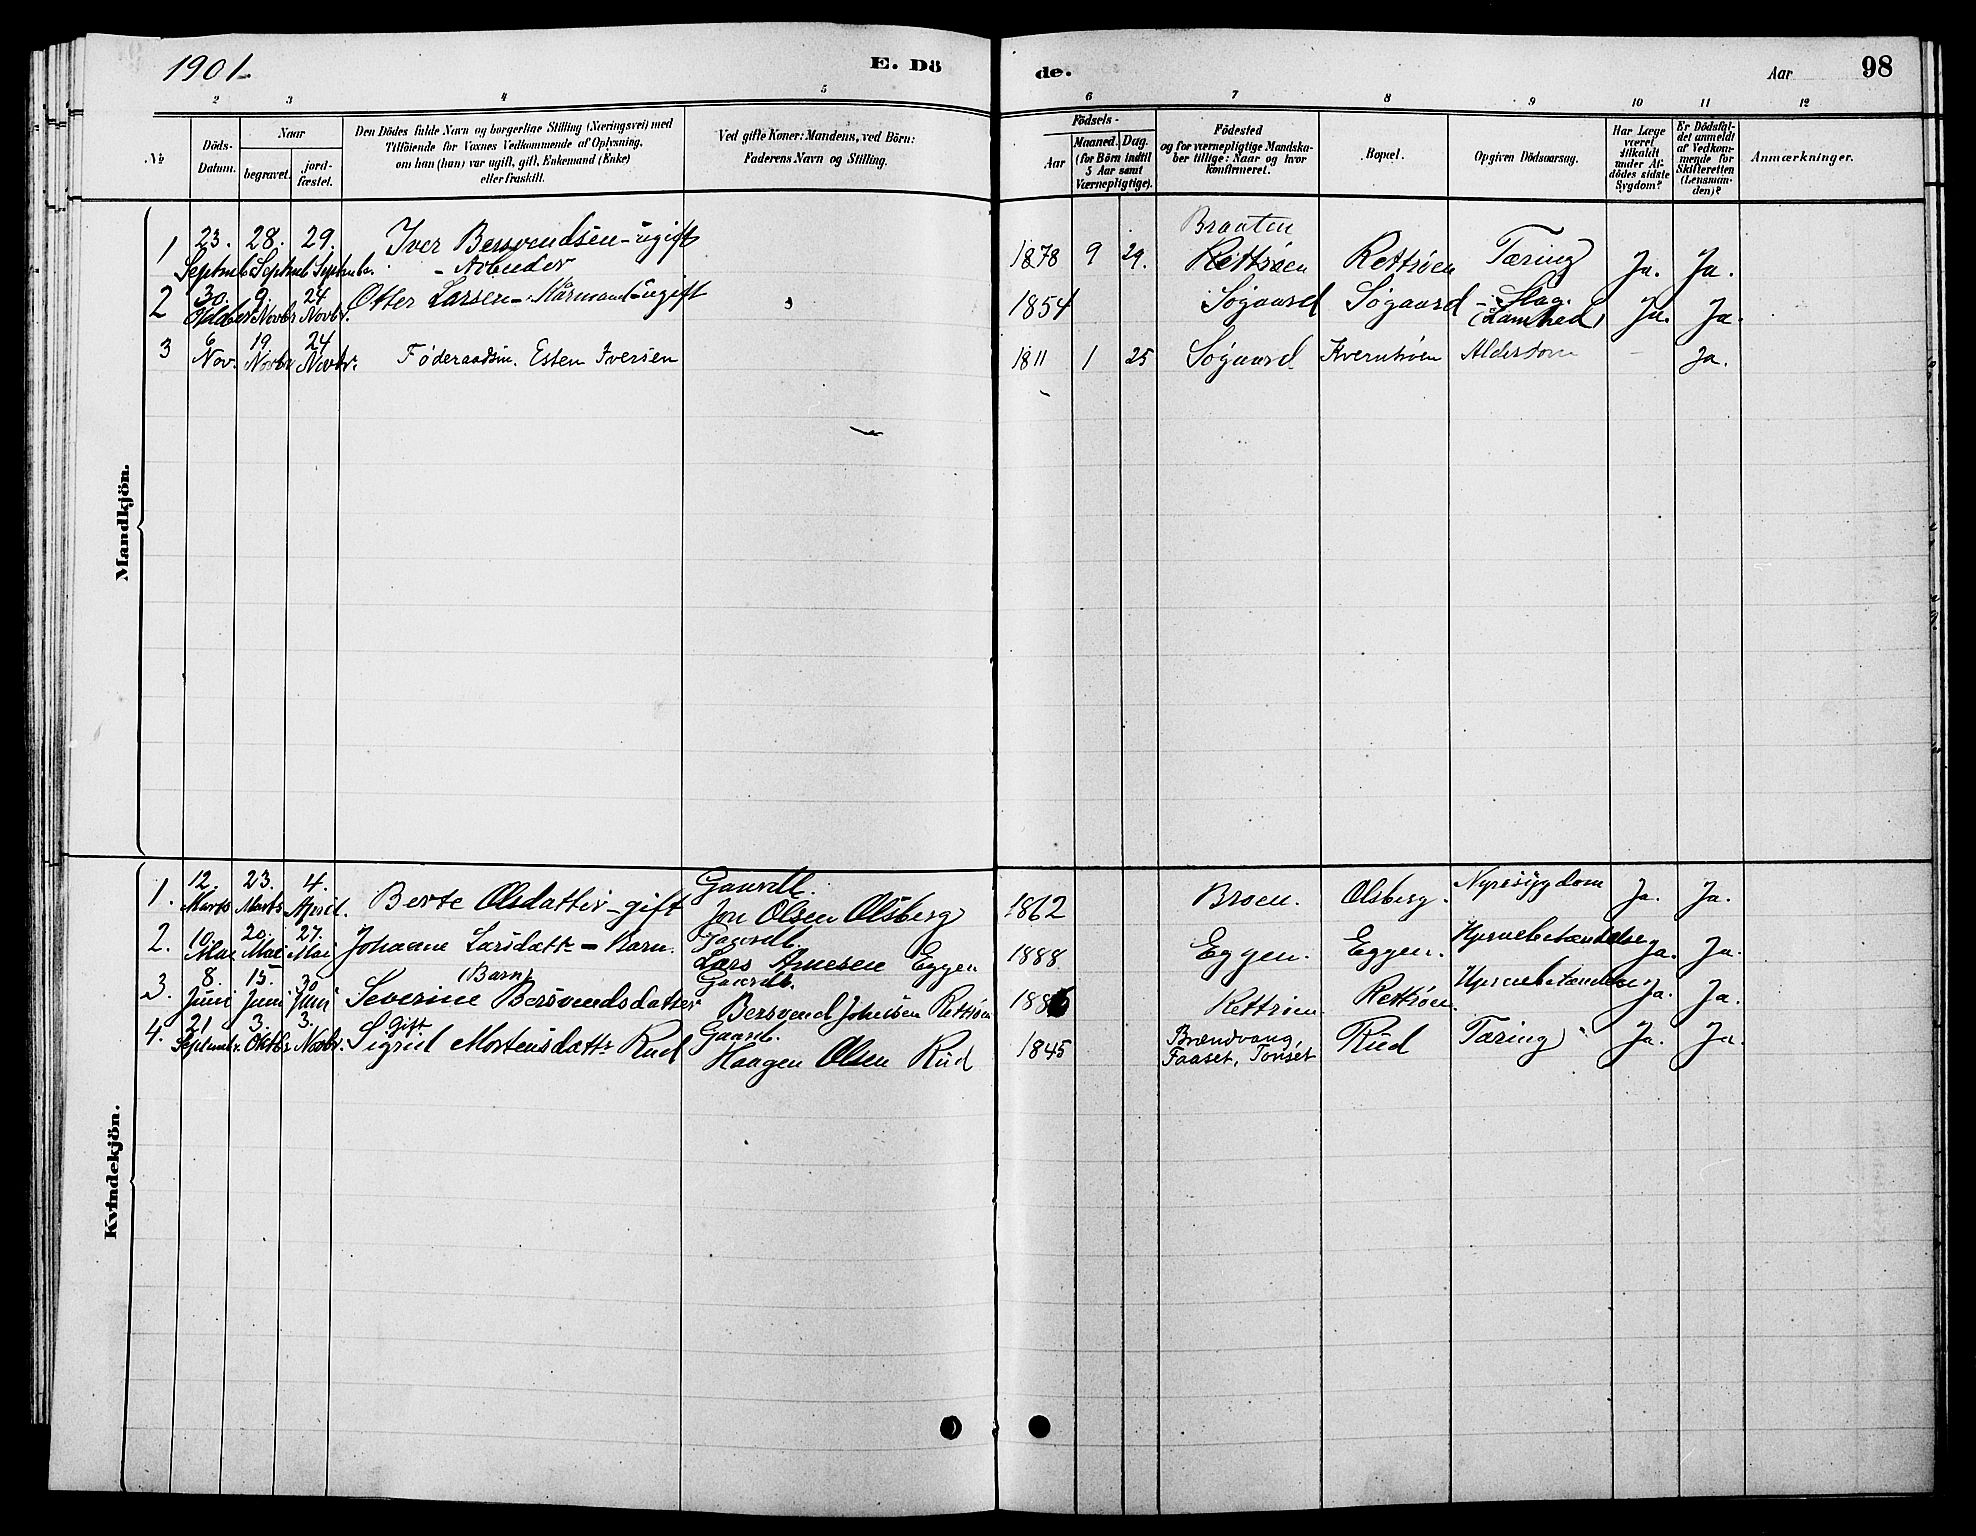 1901.
E. Dö
de.
Aar
98
2
3
4
5
6
7
8
9
10
11
12
№
Döds-
Datum.
Naar
begravet.
jord-
fæstet.
Den Dödes fulde Navn og borgerlige Stilling (Næringsvei) med
Tilföiende for Voxnes Vedkommende af Oplysning,
om han (hun) var ugift, gift, Enkemand (Enke)
eller fraskilt.
Ved gifte Koner: Mandens, ved Börn:
Faderens Navn og Stilling.
Födsels-
Aar
Maaned.
Dag.
(for Börn indtil
5 Aar samt
Værnepligtige).
Födested
og for værnepligtige Mandska-
ber tillige: Naar og hvor
konfirmeret.
Bopæl.
Opgiven Dödsaarsag.
Har Læge
været
tilkaldt
under Af-
dödes sidste
Sygdom?
Er Dödsfal-
det anmeldt
af Vedkom-
mende for
Skifteretten
(Lensman-
den)?
Anmærkninger.
Mandkjön.
1 23. Septmb. 28. Septmb 29. Septmbr. Iver Bersvendsen - ugift
- Arbeider
1878 9 29. Braaten
Rettrøen Rettrøen Tæring Ja. Ja.
2 30. Oktober 9. Novbr 24 Novbr. Otter Larsen - Kårmand - ugift
1854 Søgaard Søgaard - Slag.
(Lamhed) Ja. Ja.
3 6 Nov. 19 Novbr 24 Novbr. Føderaadsm. Esten Iversen
1811 1 25 Søgaard Kvernhøen Alderdom - Ja.
Kvindekjön.
1. 12. Marts 23. Marts 4. April. Berte Olsdatter - gift
Gaardb.
Jon Olsen Olsberg
1862 Broen. Olsberg. Nyresygdom Ja. Ja.
2. 10. Mai 20. Mai 27. Mai Johanne Larsdattr - Barn.
Gaardb.
Lars Arnesen Eggen
1888 Eggen. Eggen. Ja. Ja.
3. 8. Juni 15. Juni 30 Juni (Barn)
Severine Bersvendsdatter
Gaardb.
Bersvend Johnsen Rettrøen
1886 Rettrøen. Rettrøen Ja. Ja.
4. 21 Septmbr. 3. Oktbr 3. Novbr. Gift
Sigrid Mortensdattr Rud
Gaardb.
Haagen Olsen Rud
1845 Brændvang,
Faaset, Tønset Rud Tæring Ja. Ja.